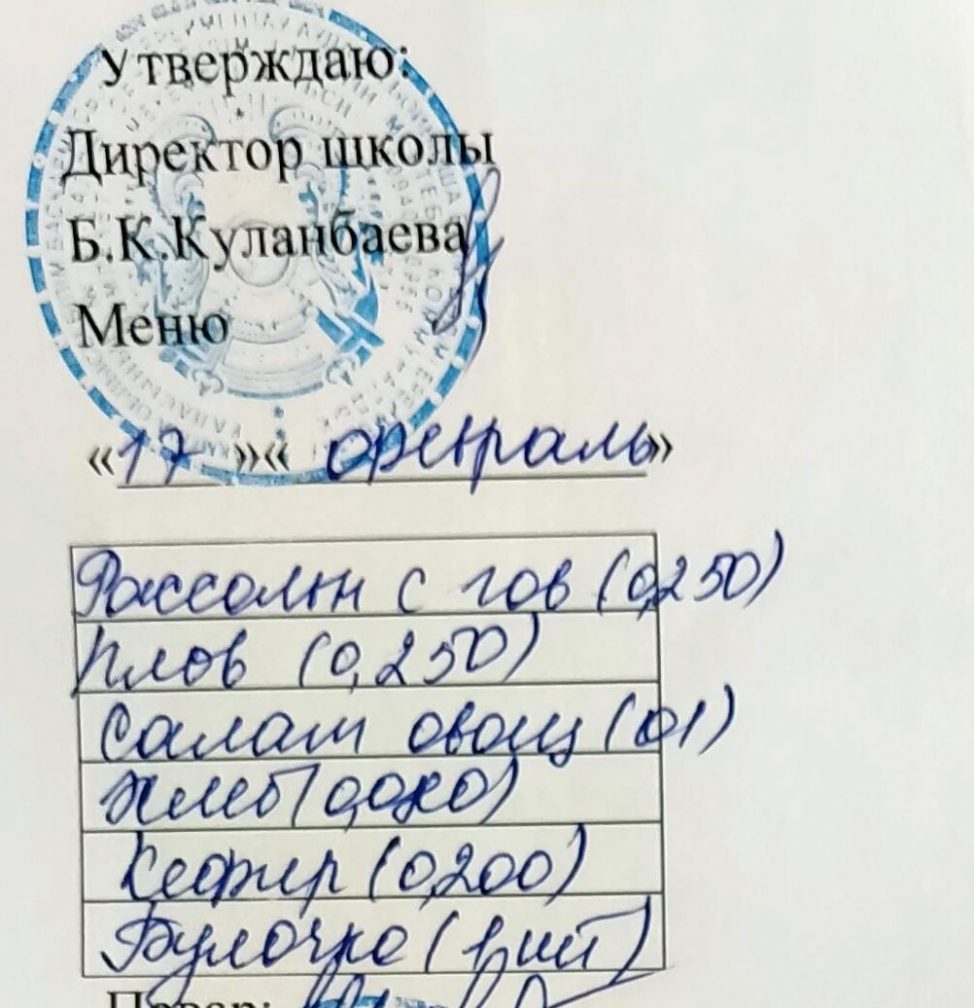 Утверждаю:
Директор школы
Б.К.Куланбаева
Меню
«17» «февраль»
Рассольн с гов (0,250)
Плов (0,250)
Салат овощ (01)
Хлеб (0,080)
Кефир (0,200)
Булочка (1 шт)
Повар: